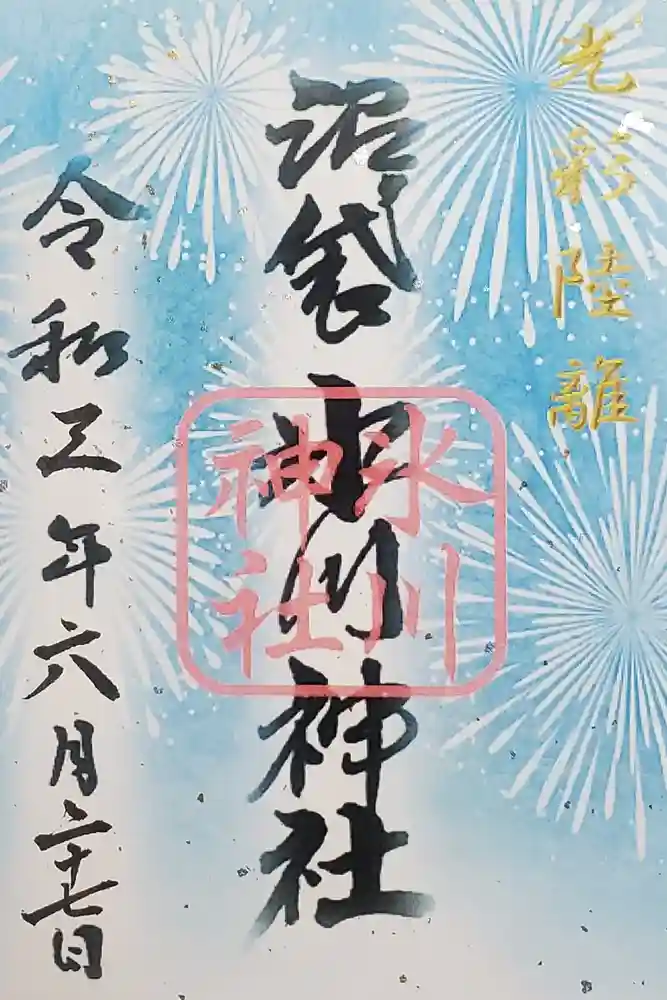 光彩陸離
沼袋氷川神社
氷川
神社
令和三年六月二十七日